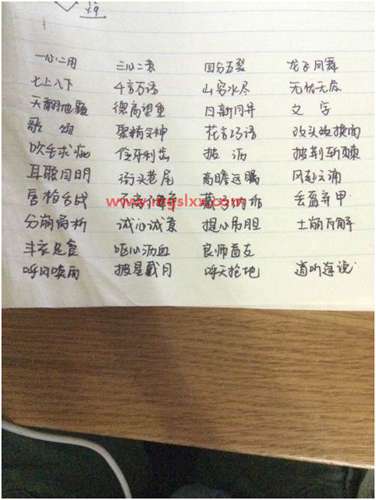 一心二用 三心二意 四分五裂 龙飞凤舞
七上八下 千言万语 山穷水尽 无忧无虑
天翻地覆 德高望重 日新月异
歌颂 聚精会神 花言巧语 改头换面
吹毛求疵 伶牙利齿 披荆斩棘
耳聪目明 街头巷尾 高瞻远瞩 风起云涌
唇枪舌战 丢盔弃甲
分崩离析 诚心诚意 提心吊胆 土崩瓦解
丰衣足食 呕心沥血 良师益友
呼风唤雨 披星戴月 呼天抢地 道听途说